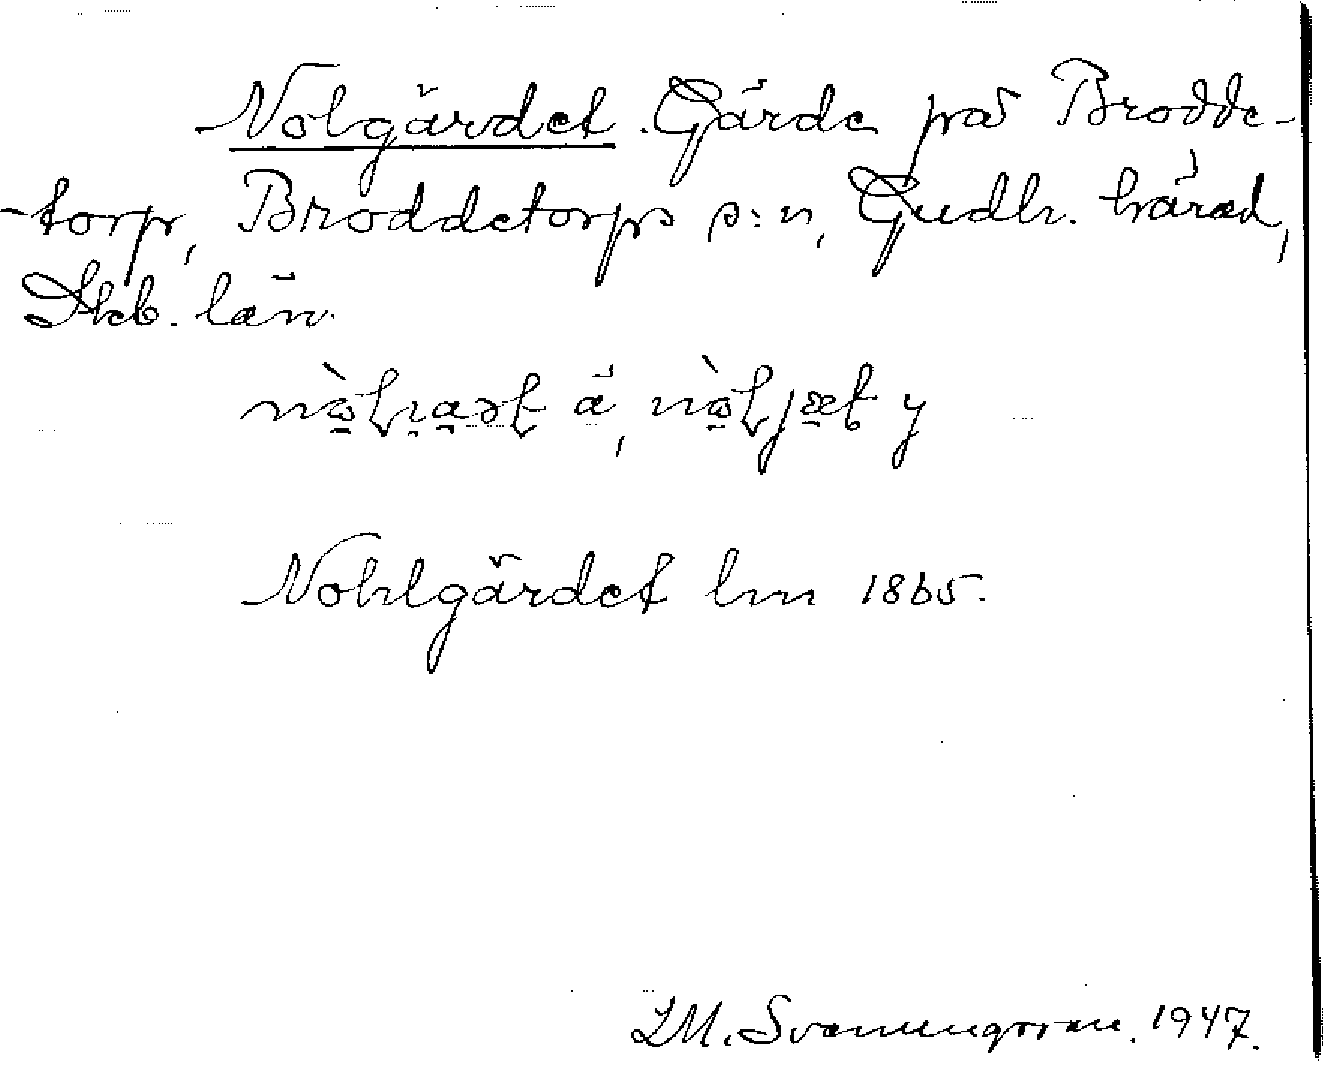 Nolgärdet. Gärde på Brodde-
-torp, Broddetorps s:n, Gudh. härad,
Skb. län.
ä, y
Nohlgärdet lm 1865.
D. M. Svenungsson. 1947.